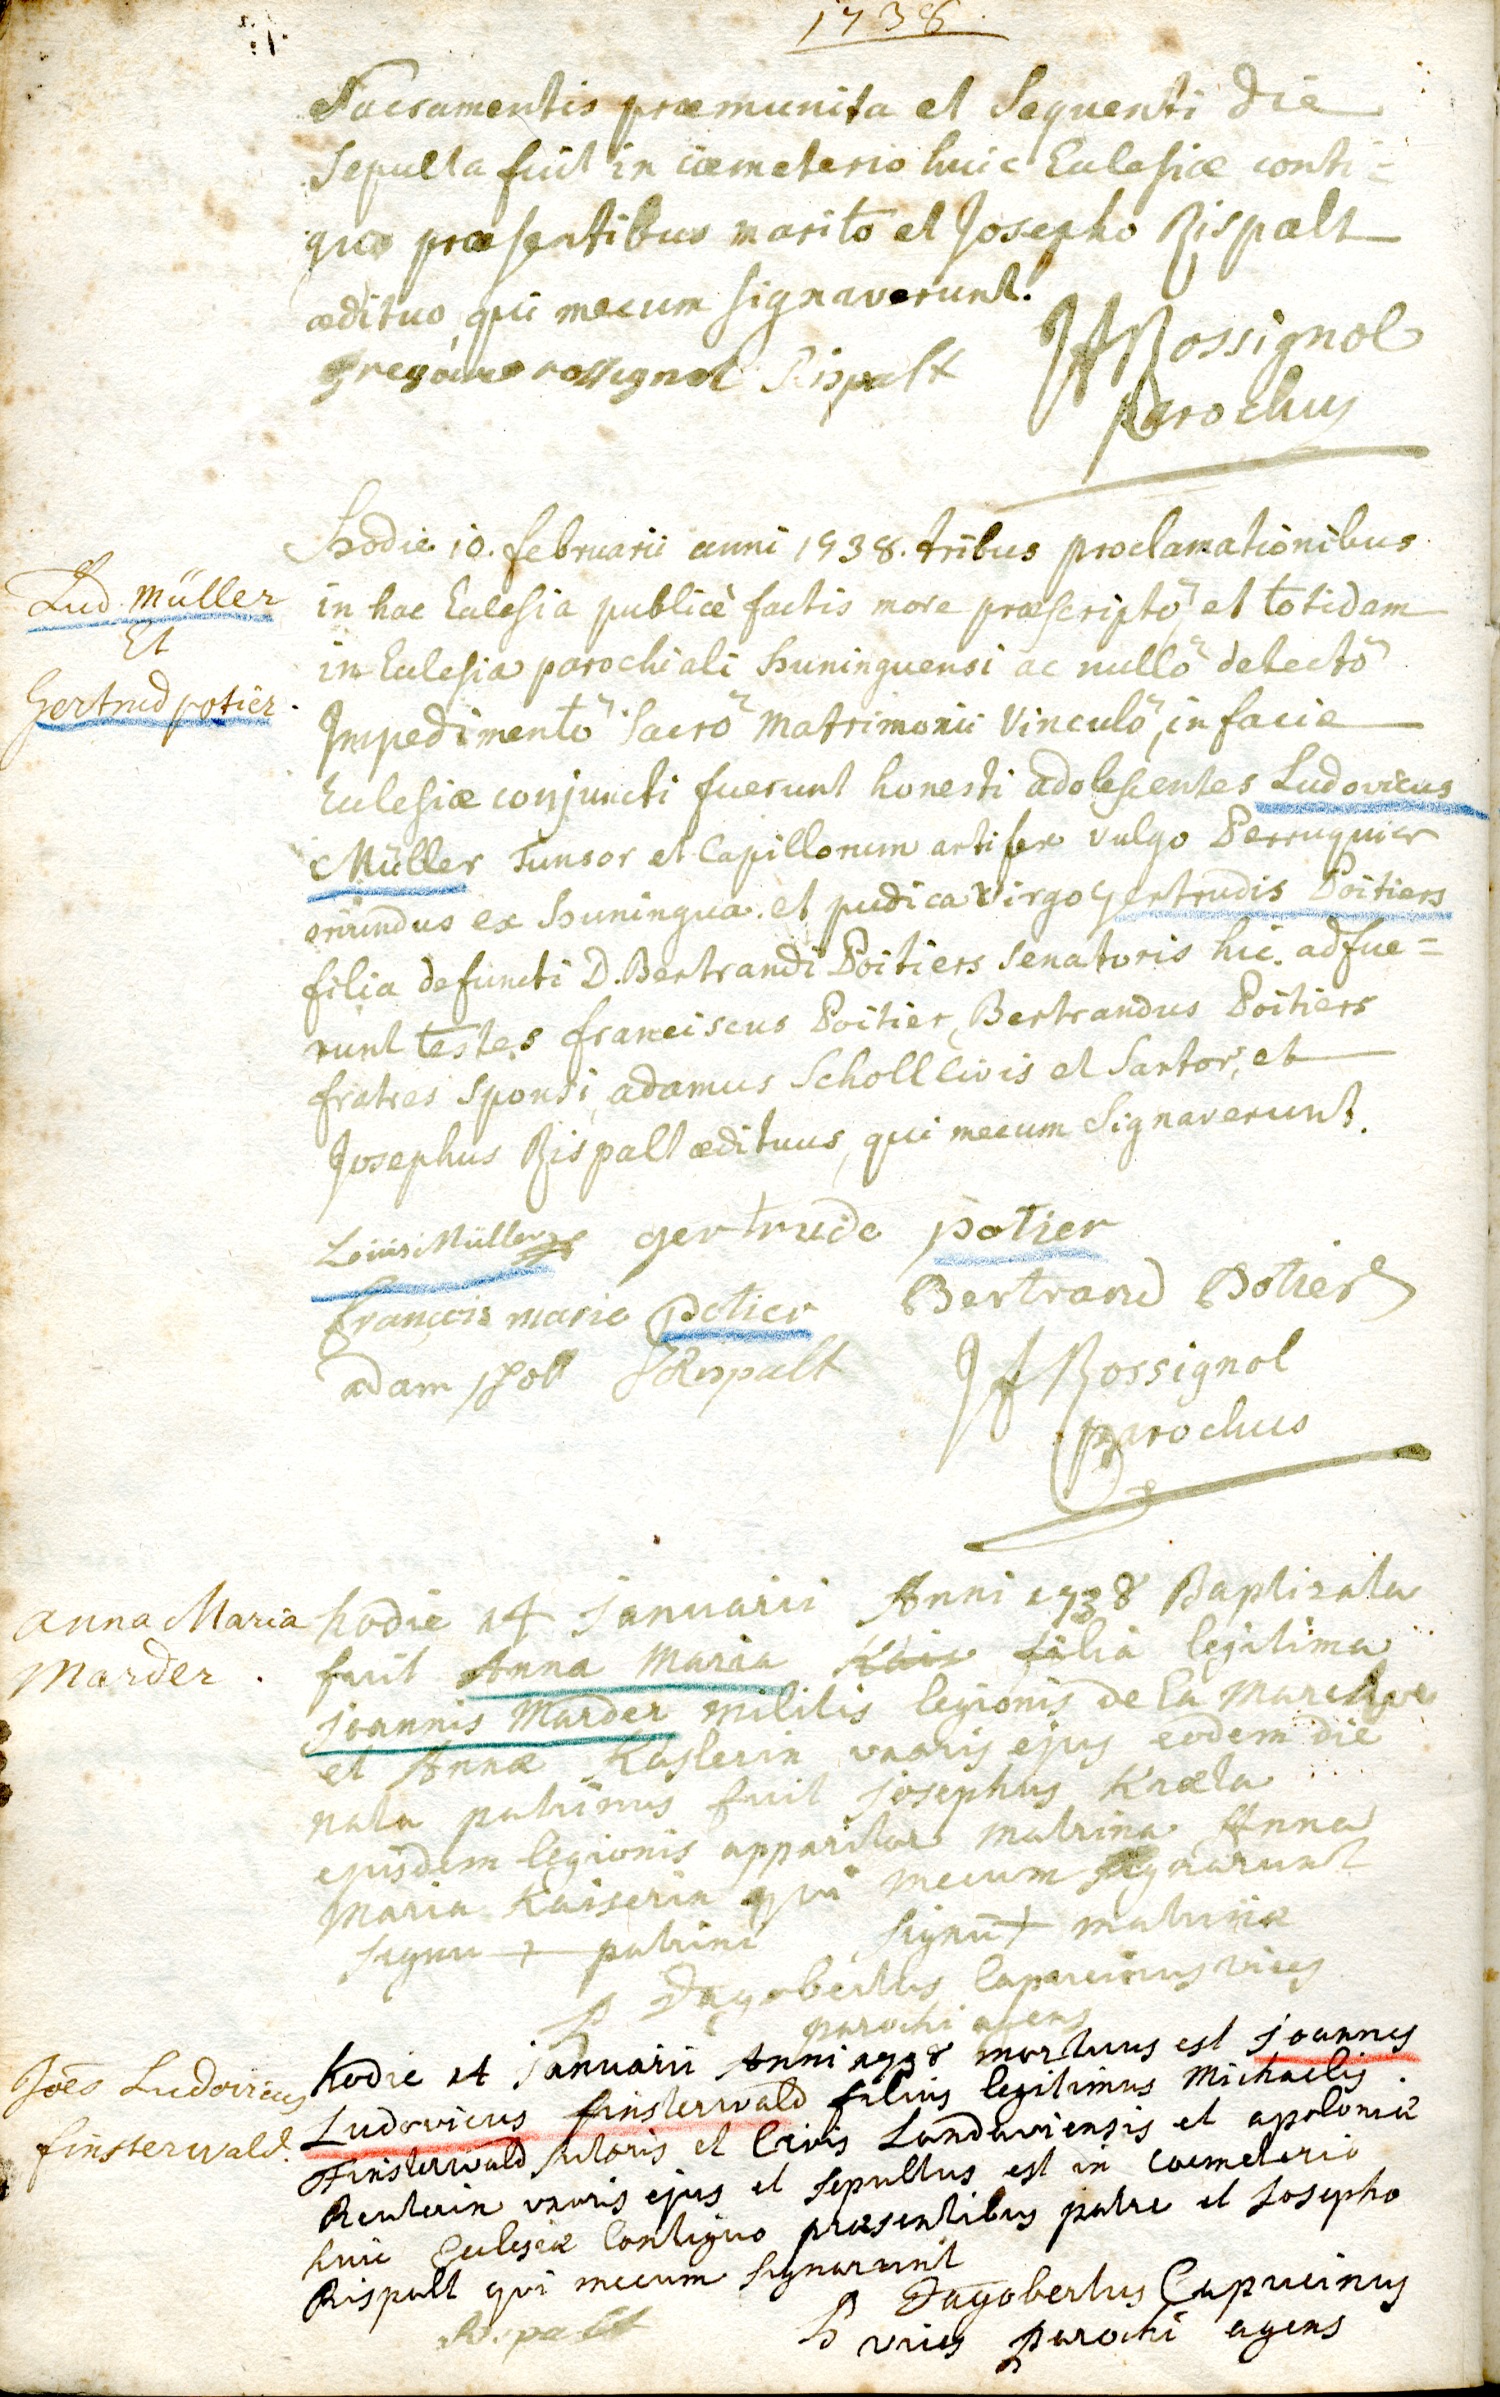 1738
Sacramentis præmunita et Sequenti die
Sepulta fuit in cœmeterio huic Eclesiæ conti=
guo præsentibus marito et Josepho Rispalt
ædituo qui mecum signaverunt.
gregoire rossignol Rispalt JfRossignol
parochus
Hodie 10. februarii anni 1738. tribus proclamationibus
Lud. Müller
in hac Eclesia publicè factis more præscripto, et totidem
Et
in Eclesia parochiali huninguensi ac nullo detecto
Gertrud potier.
Impedimento Sacro Matrimonii Vinculo, in facie
Eclesiæ conjuncti fuerunt honesti adolescentes Ludovicus
Müller Tunsor et Capillorum artifex vulgo Perruquier
oriundus ex huningua. et pudica virgo gertrudis Poitiers
filia defuncti D. Bertrandi Poitiers senatoris hic. adfue=
runt testes franciscus Poitier, Bertrandus Poitiers
fratres sponsi, adamus Scholl Civis et Sartor, et
Josephus Rispalt ædituus, qui mecum Signaverunt.
Louis Müller gertrude potier
françois marie potier Bertrand Potier
adam scholl Rispalt Jf Rossignol
parochus
anna Maria
Marder.
hodie 14 januarii Anni 1738 Baptizata
fuit Anna Maria filia legitima
joannis Marder militis legionis de la Marche
et Annæ Kaslerin uxoris ejus eodem die
nata patrinus fuit josephus Kræla
ejusdem legionis apparitor matrina Anna
Maria Kaiserin qui mecum signarunt
signu + patrini signu + matrinæ
P Dagobertus Capucinus vices
parochi agens
Joes Ludovicus
finsterwald.
hodie 14 januarii Anni 1738 mortuus est joannes
Ludovicus finsterwald filius legitimus Michaelis
Finsterwald sutoris et Civis Landaviensis et apoloniæ
Reuterin uxoris ejus et sepultus est in Coemeterio
huic Eclesiæ Contiguo præsentibus patre et Josepho
Rispalt qui mecum signarunt
P Dagobertus Capucinus
Rispalt vices parochi agens